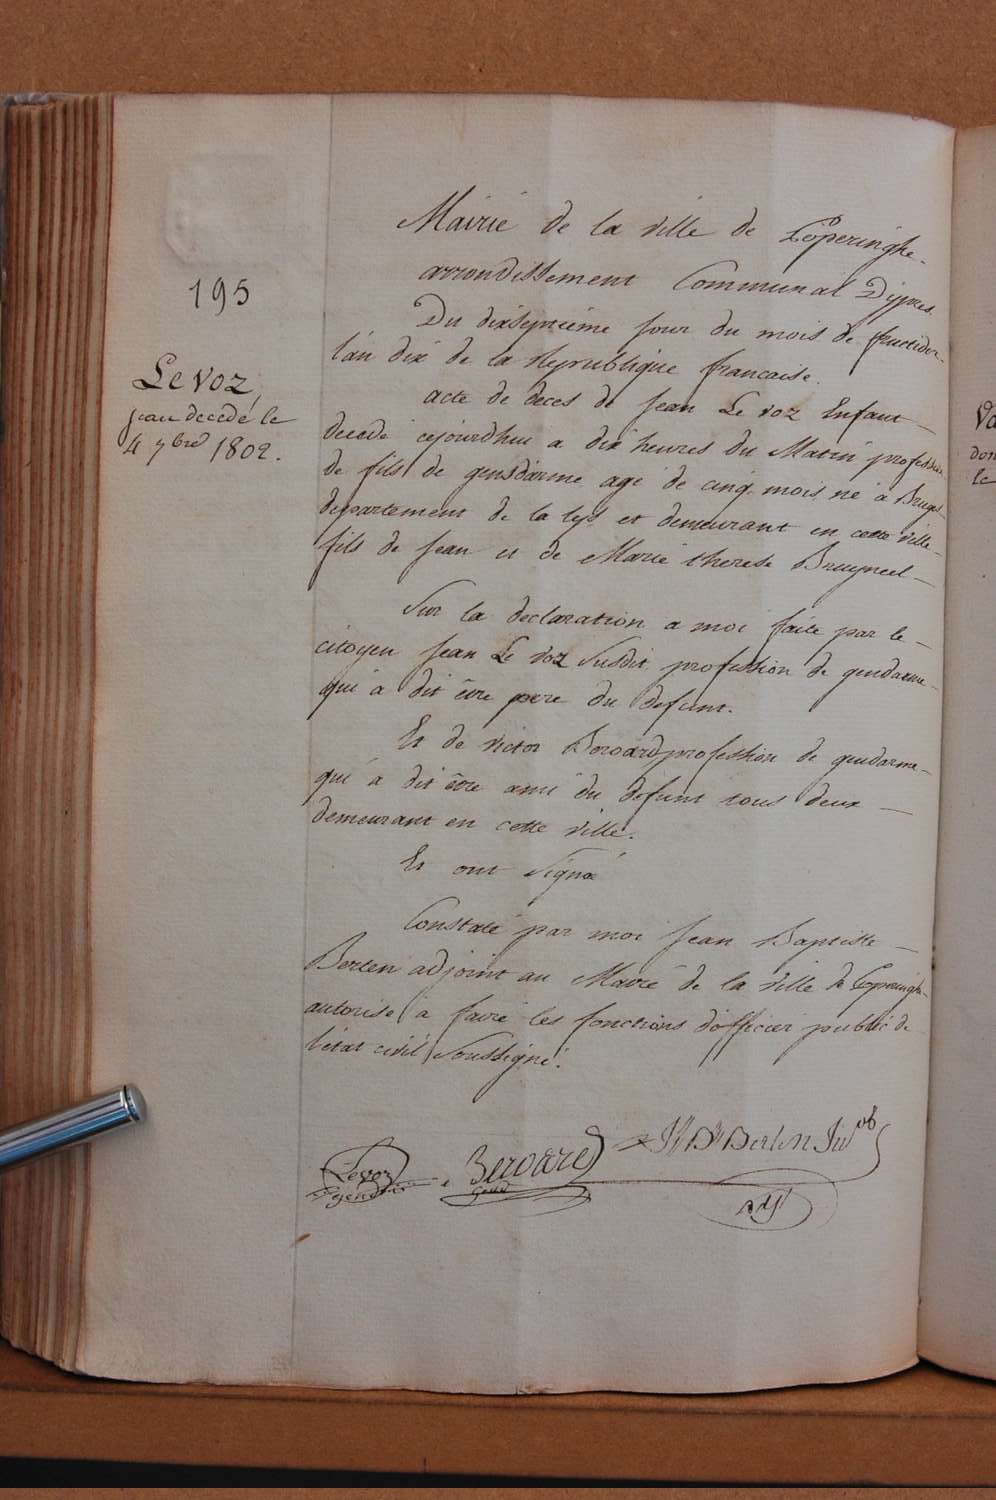 195
Le voz
jean decedé le
4 7bre 1802.
Mairie de la ville de Poperinghe
arrondissement Communal D'ypres.
Du dixseptieme jour du mois de fructidor
l'an dix de la Republique francaise.
acte de deces de Jean Le voz Enfant
decedé cejourdhui a dix heures du Matin profession
de fils de gensdarme agé de cinq mois né a Bruges
departement de la lys et demeurant en cette ville
fils de Jean et de Marie therese Bruyneel
Sur la declaration a moi faite par le
citoyen Jean Le voz Susdit profession de gendarme
qui a dit être pere du defunt.
Et de victor Beroard profession de gendarme
qui a dit être ami du defunt tous deux
demeurant en cette ville.
Et ont signé
Constaté par moi Jean Baptiste
Berten adjoint au Maire de la ville de Poperinghe
autorisé a faire les fonctions d'officier public de
l'état civil Soussigné.
Levoz
gendar
Beroard
Gend
Berten
Va
don
le